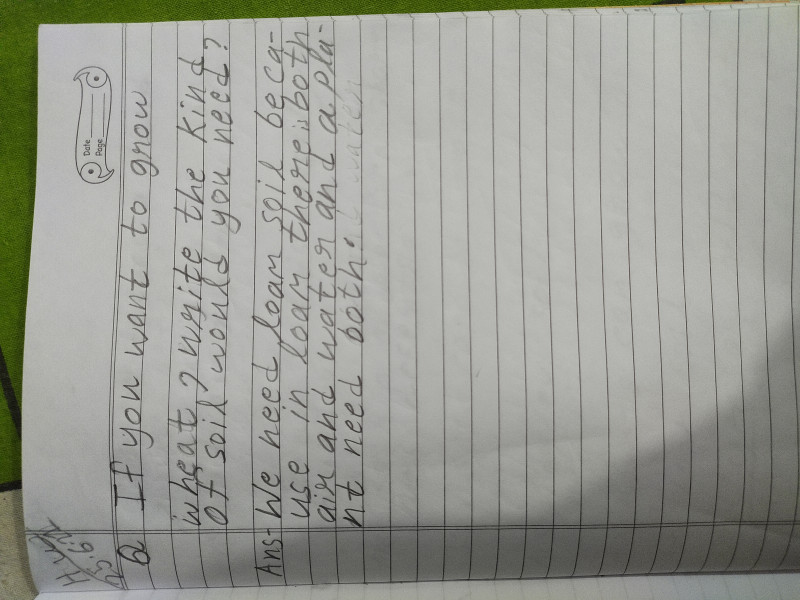 Date
Page
Q If you want to grow
wheat, write the kind
of soil would you need?
Ans- We need loam soil beca-
use in loam there is both
air and water and a pla-
nt need both.